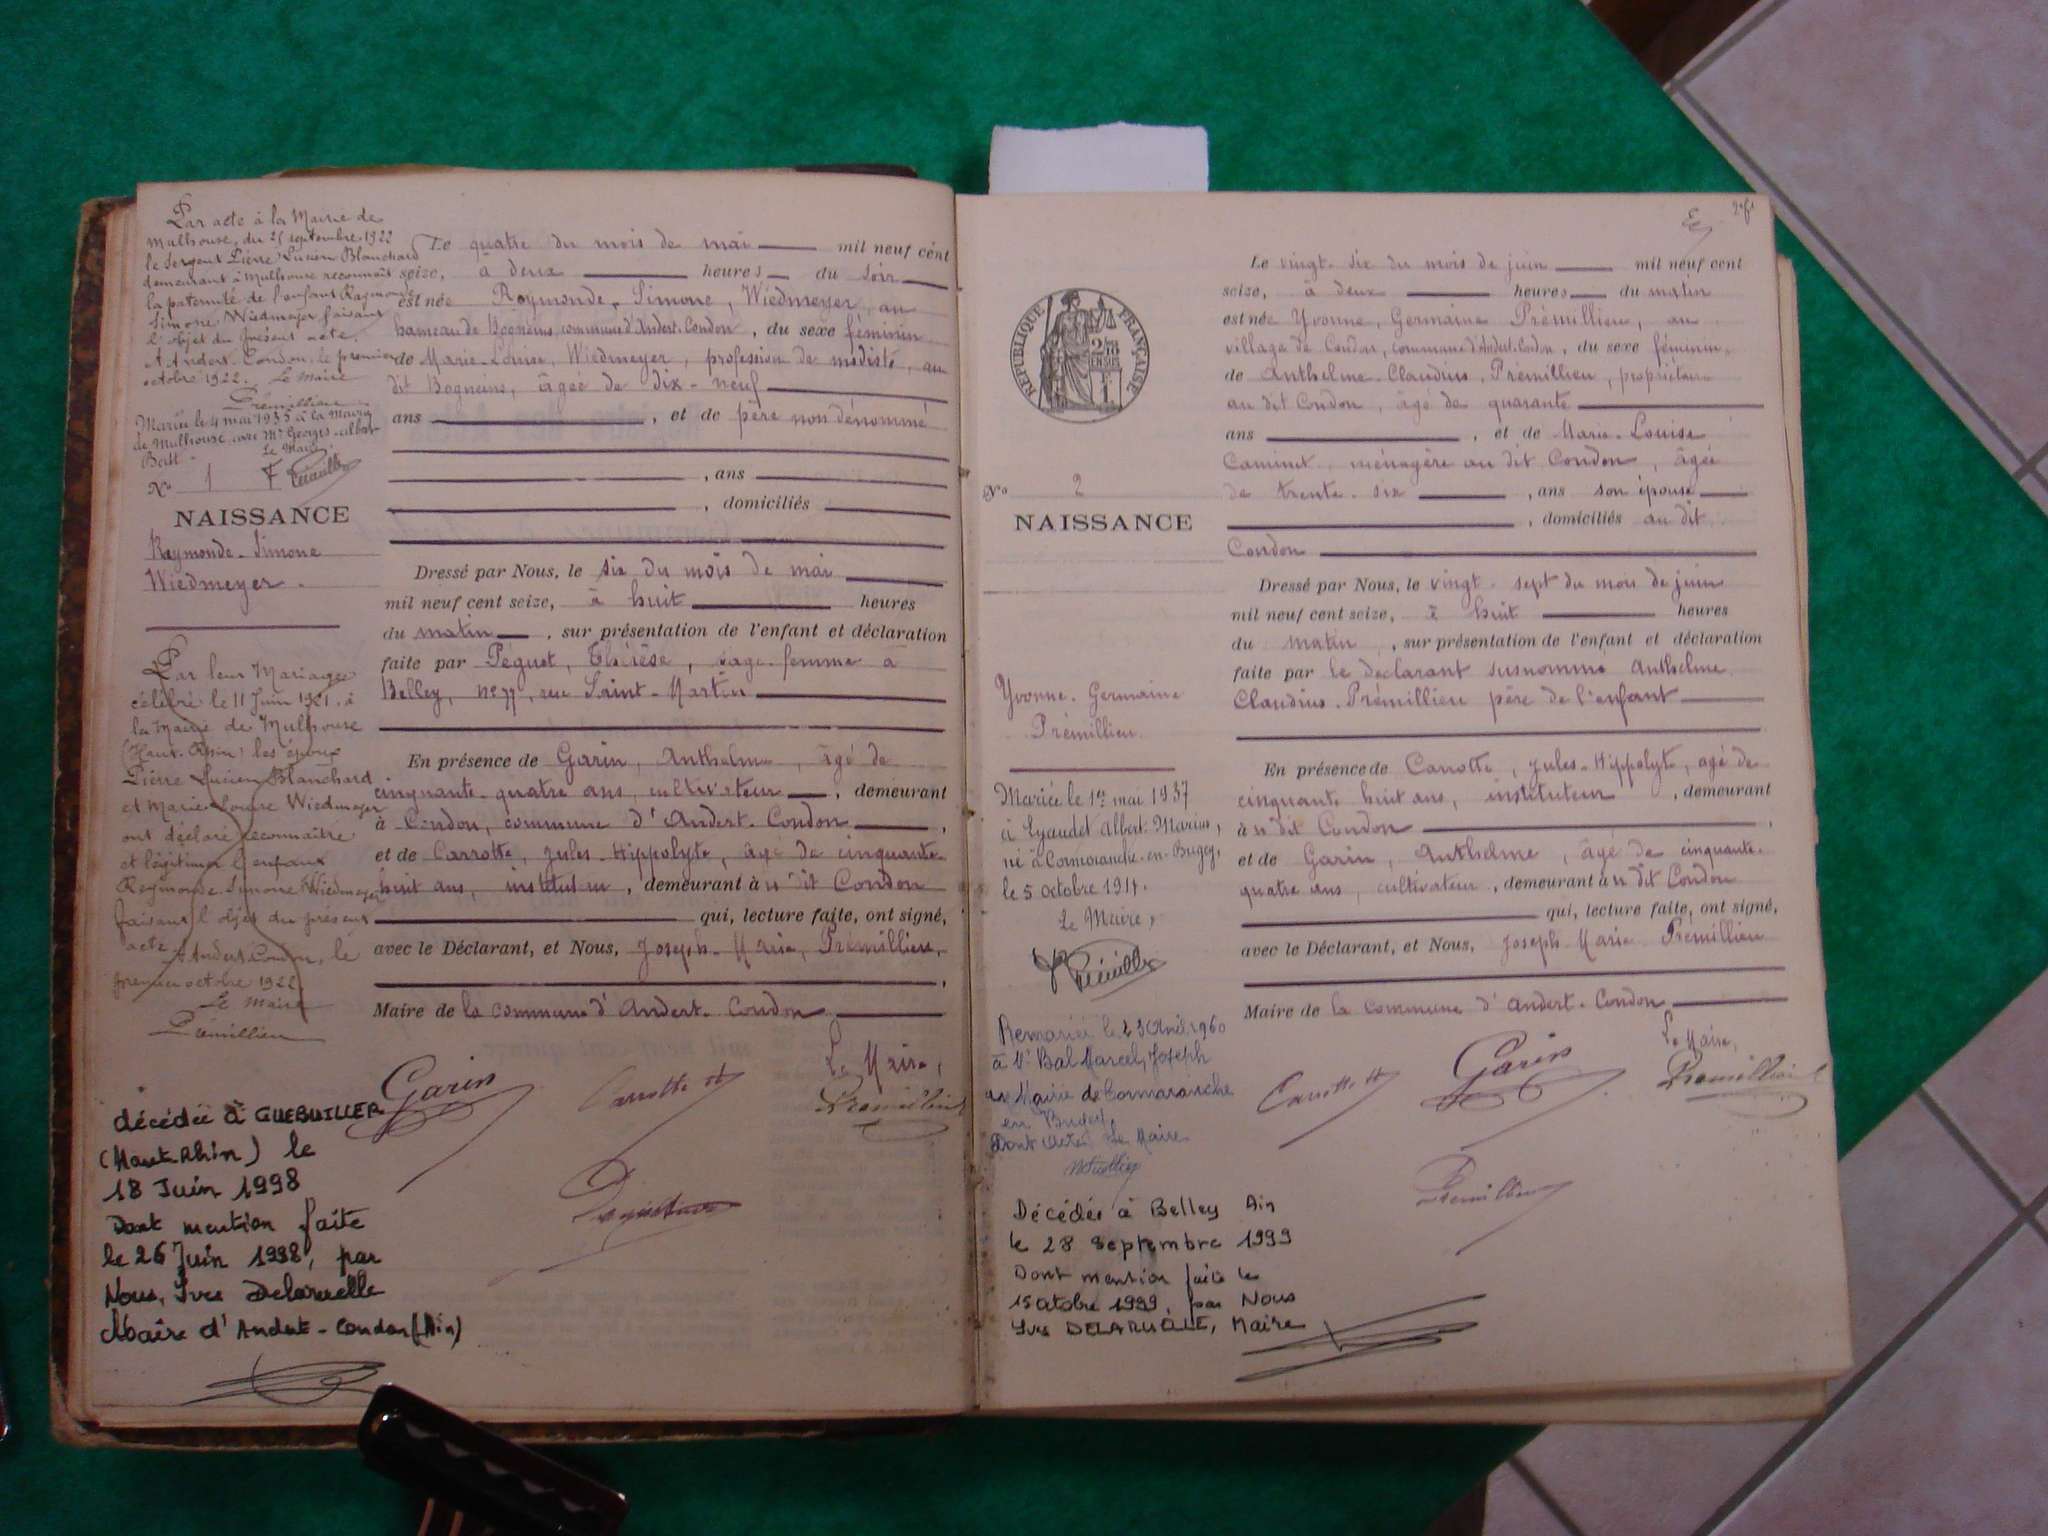 Par acte à la Mairie de
Mulhouse, du 21 septembre 1922
le Sergent Pierre Lucien Blanchard
demeurant à Mulhouse reconnaît
la paternité de l'enfant Raymonde
Simone Wiedmeyer faisant
l'objet du présent acte.
A Andert-Condon, le premier
octobre 1922. Le Maire
Prémillieu
Mariée le 4 mai 1935 à la Mairie
de Mulhouse avec Mr Georges-Albert
Le Maire
No 1
NAISSANCE
Raymonde-Simone
Wiedmeyer.
Par leur Mariage
célébré le 11 Juin 1921 à
la Mairie de Mulhouse
(Haut-Rhin) les époux
Pierre Lucien Blanchard
et Marie-Louise Wiedmeyer
ont déclaré reconnaître
et légitimer l'enfant
Raymonde Simone Wiedmeyer
faisant l'objet du présent
acte. A Andert-Condon, le
premier octobre 1922
Le Maire
Prémillieu
décédée à GUEBWILLER
(Haut Rhin) le
18 Juin 1998
Dont mention faite
le 26 Juin 1998, par
Nous, Yves Delaruelle
Maire d'Andert-Condon (Ain)
Le quatre du mois de mai mil neuf cent
seize, à deux heures du soir
est née Raymonde, Simone, Wiedmeyer, au
hameau de Bogneins, commune d'Andert-Condon, du sexe féminin
de Marie-Louise, Wiedmeyer, profession de modiste, au
dit Bogneins, âgée de dix-neuf
ans , et de père non dénommé
, ans
, domiciliés
Dressé par Nous, le six du mois de mai
mil neuf cent seize, à huit heures
du matin , sur présentation de l'enfant et déclaration
faite par Péguet, Thérèse, sage-femme à
Belley, no 77, rue Saint-Martin
En présence de Garin, Anthelme, âgé de
cinquante-quatre ans, cultivateur , demeurant
à Condon, commune d'Andert-Condon ,
et de Carrotte, Jules-Hippolyte, âgé de cinquante-
huit ans, instituteur , demeurant à u dit Condon
qui, lecture faite, ont signé,
avec le Déclarant, et Nous, Joseph-Marie, Prémillieu,
Maire de la commune d'Andert-Condon
Le Maire,
Garin Carrotte H Premillieu
RÉPUBLIQUE FRANÇAISE
No 2
NAISSANCE
Yvonne-Germaine
Prémillieu
Mariée le 1er mai 1937
à Eyaudet Albert-Marius,
né à Cormoranche-en-Bugey,
le 5 octobre 1911.
Le Maire,
Remariée le 23 Avril 1960
à Mr Bal Marcel, Joseph
en Mairie de Cormoranche
en Bugey.
Dont Acte Le Maire
Décédée à Belley Ain
le 28 Septembre 1999
Dont mention faite le
15 octobre 1999, par Nous
Yves DELARUELLE, Maire
Le vingt-six du mois de juin mil neuf cent
seize, à deux heures du matin
est née Yvonne, Germaine Prémillieu, au
village de Condon, commune d'Andert-Condon, du sexe féminin,
de Anthelme-Claudius, Prémillieu, propriétaire
au dit Condon, âgé de quarante
ans , et de Marie-Louise
Caminet, ménagère au dit Condon, âgée
de trente-six , ans son épouse
, domiciliés au dit
Condon
Dressé par Nous, le vingt-sept du mois de juin
mil neuf cent seize, à huit heures
du matin , sur présentation de l'enfant et déclaration
faite par le déclarant susnommé Anthelme
Claudius-Prémillieu père de l'enfant
En présence de Carrotte, Jules-Hippolyte, âgé de
cinquante huit ans, instituteur , demeurant
à u dit Condon ,
et de Garin, Anthelme, âgé de cinquante-
quatre ans, cultivateur , demeurant à u dit Condon
qui, lecture faite, ont signé,
avec le Déclarant, et Nous, Joseph-Marie Prémillieu
Maire de la commune d'Andert-Condon
Le Maire,
Carrotte H Garin Premillieu
Premillieu